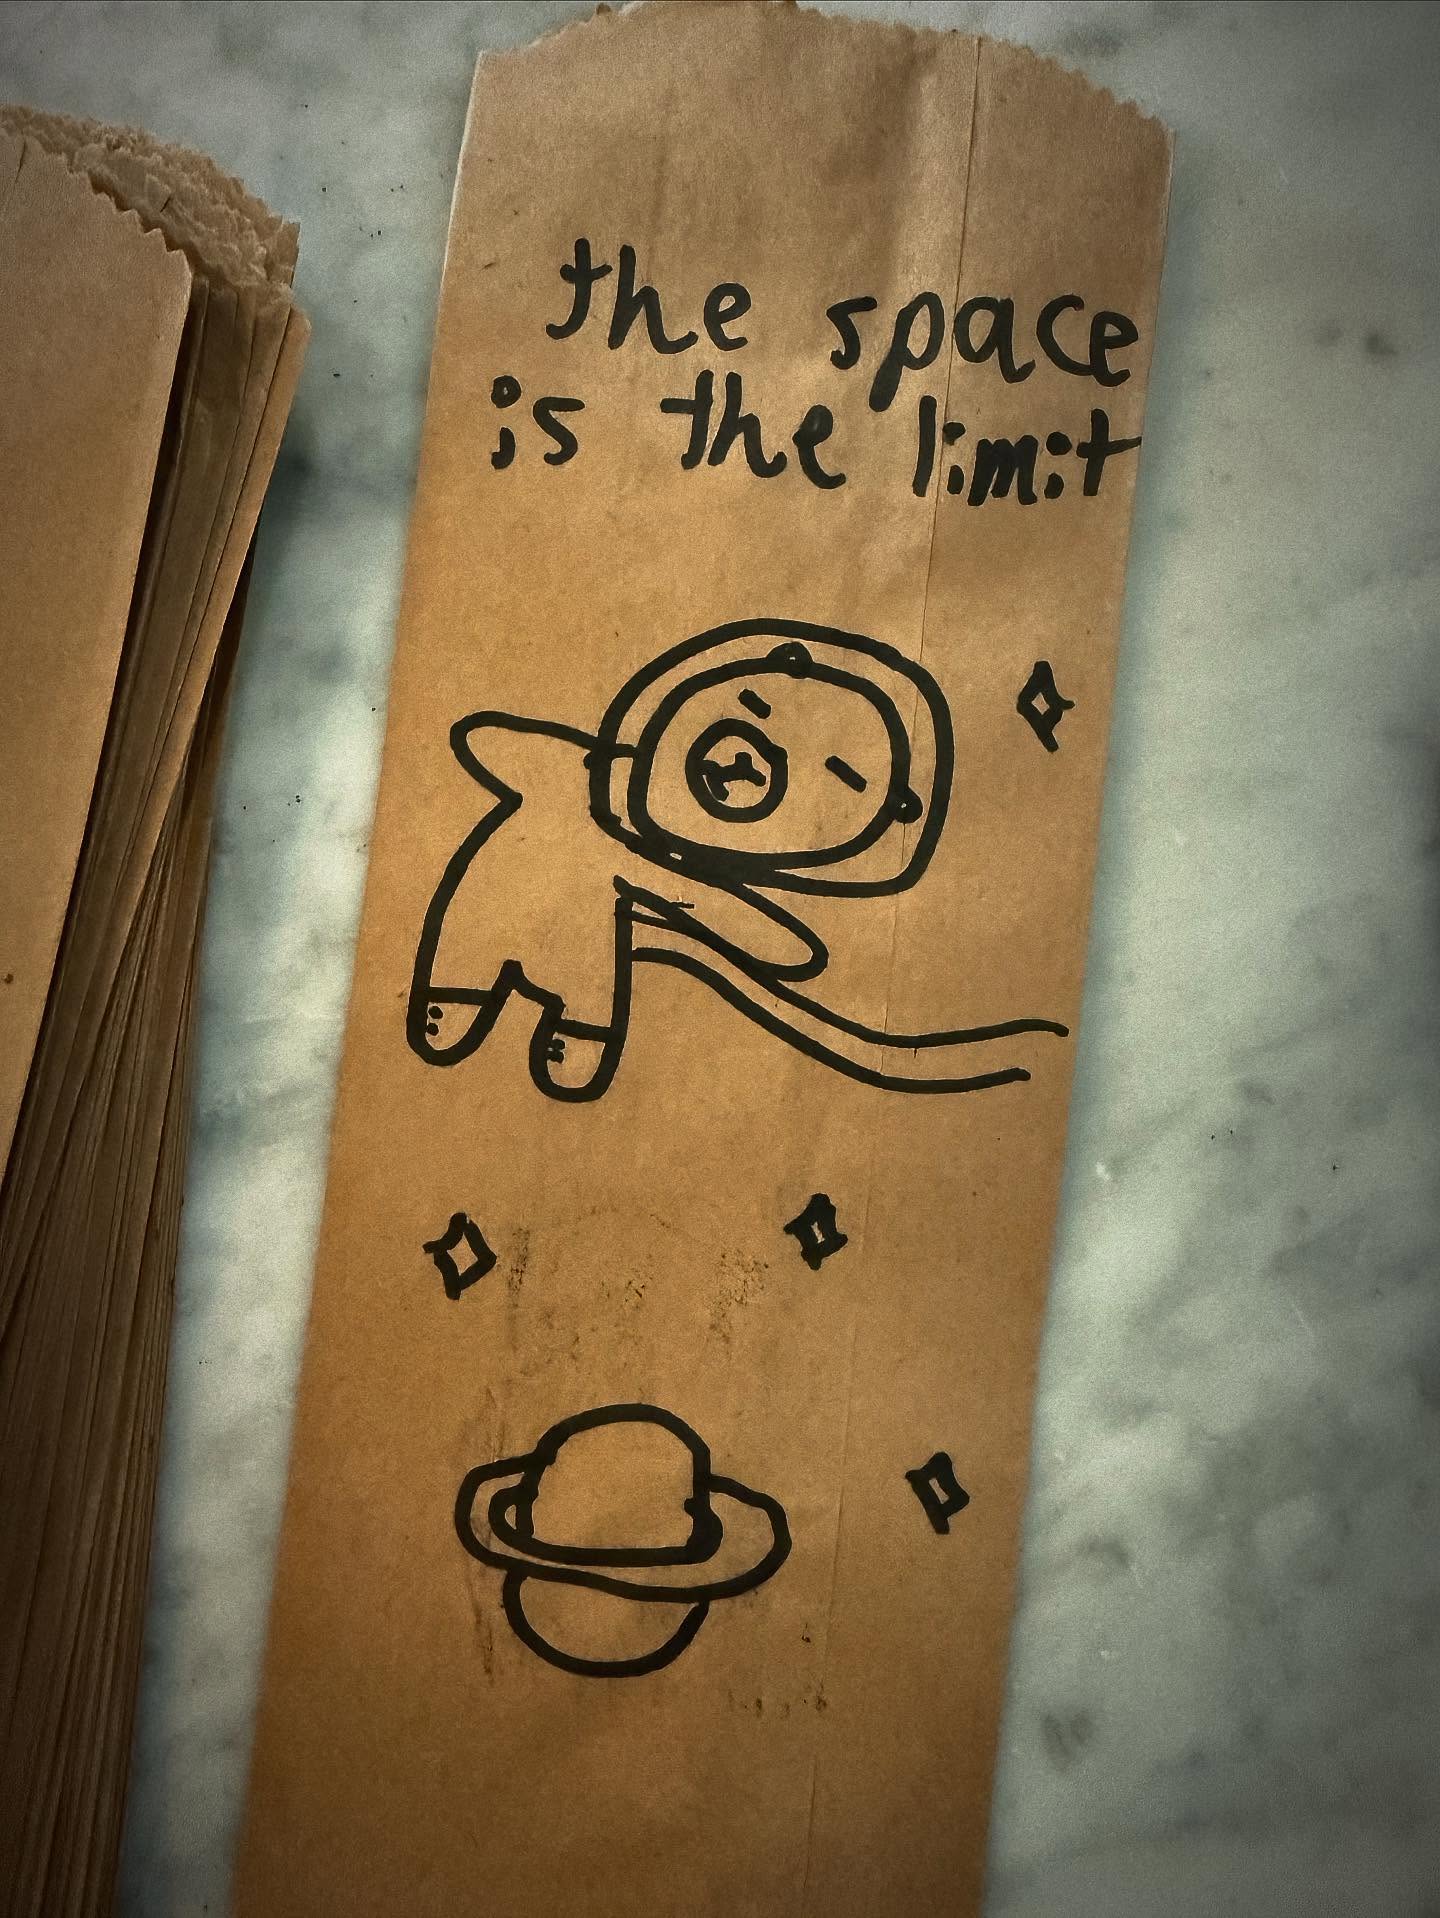 the space
is the limit